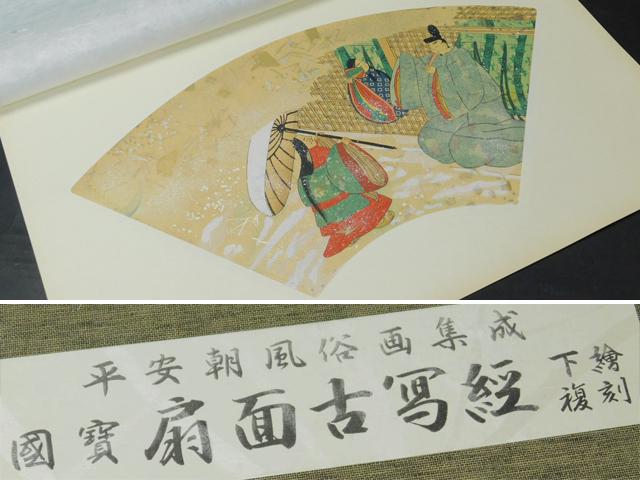 平安朝風俗画集成
國寶 扇面古写經
下繪
複刻